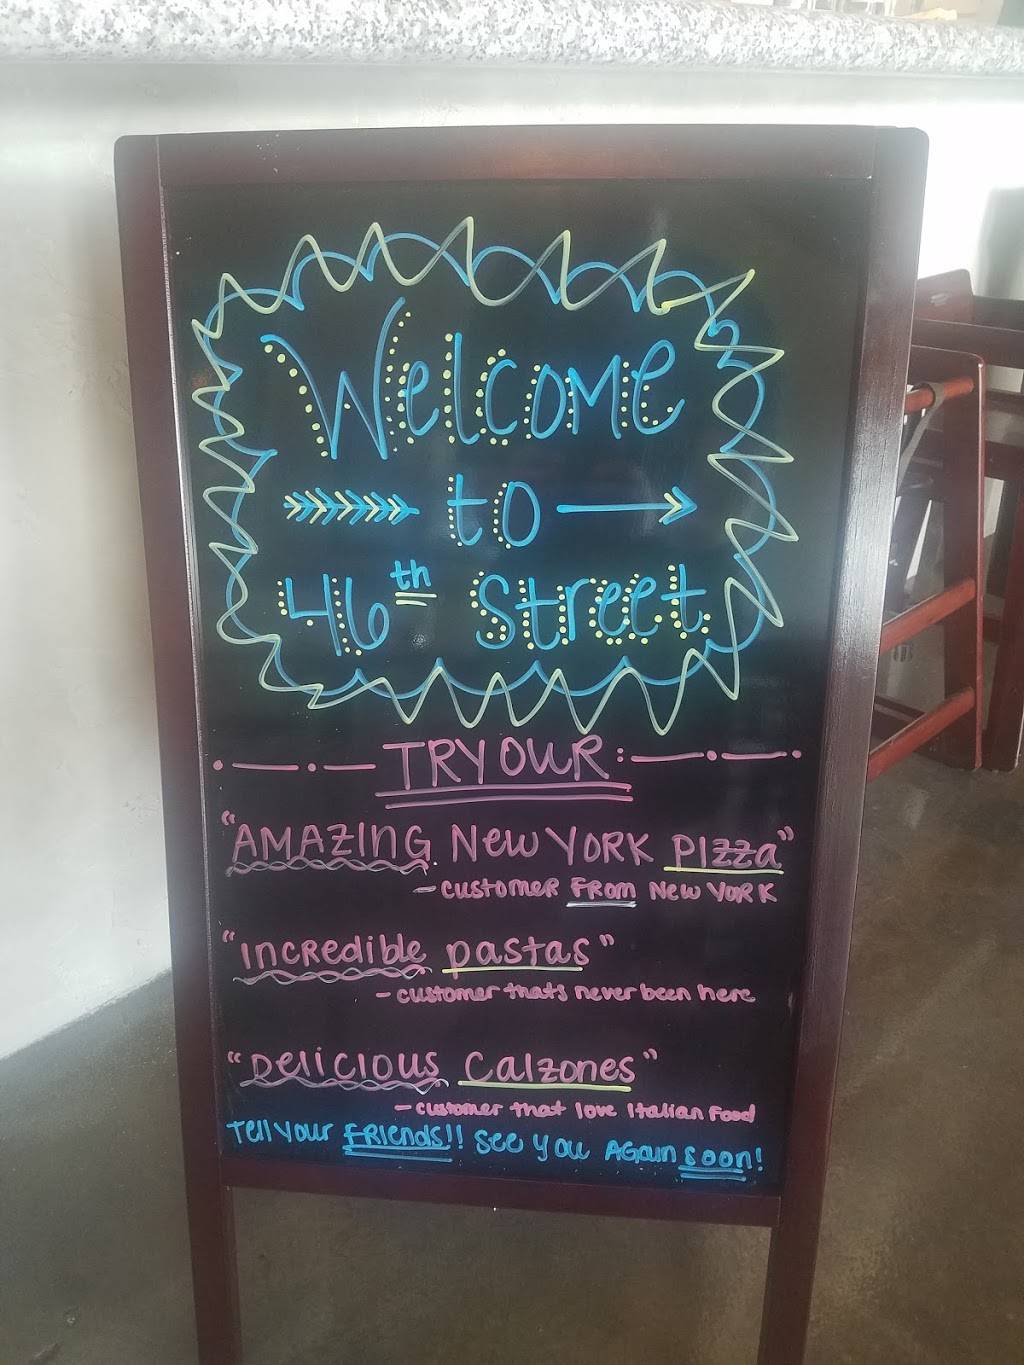 Welcome
to
46th Street
TRY OUR:
"AMAZING New YORK Pizza"
- customer FROM New YORK
"Incredible pastas"
- customer thats never been here
"Delicious Calzones"
- customer that love Italian Food
Tell Your FRIends!! See you Again soon!